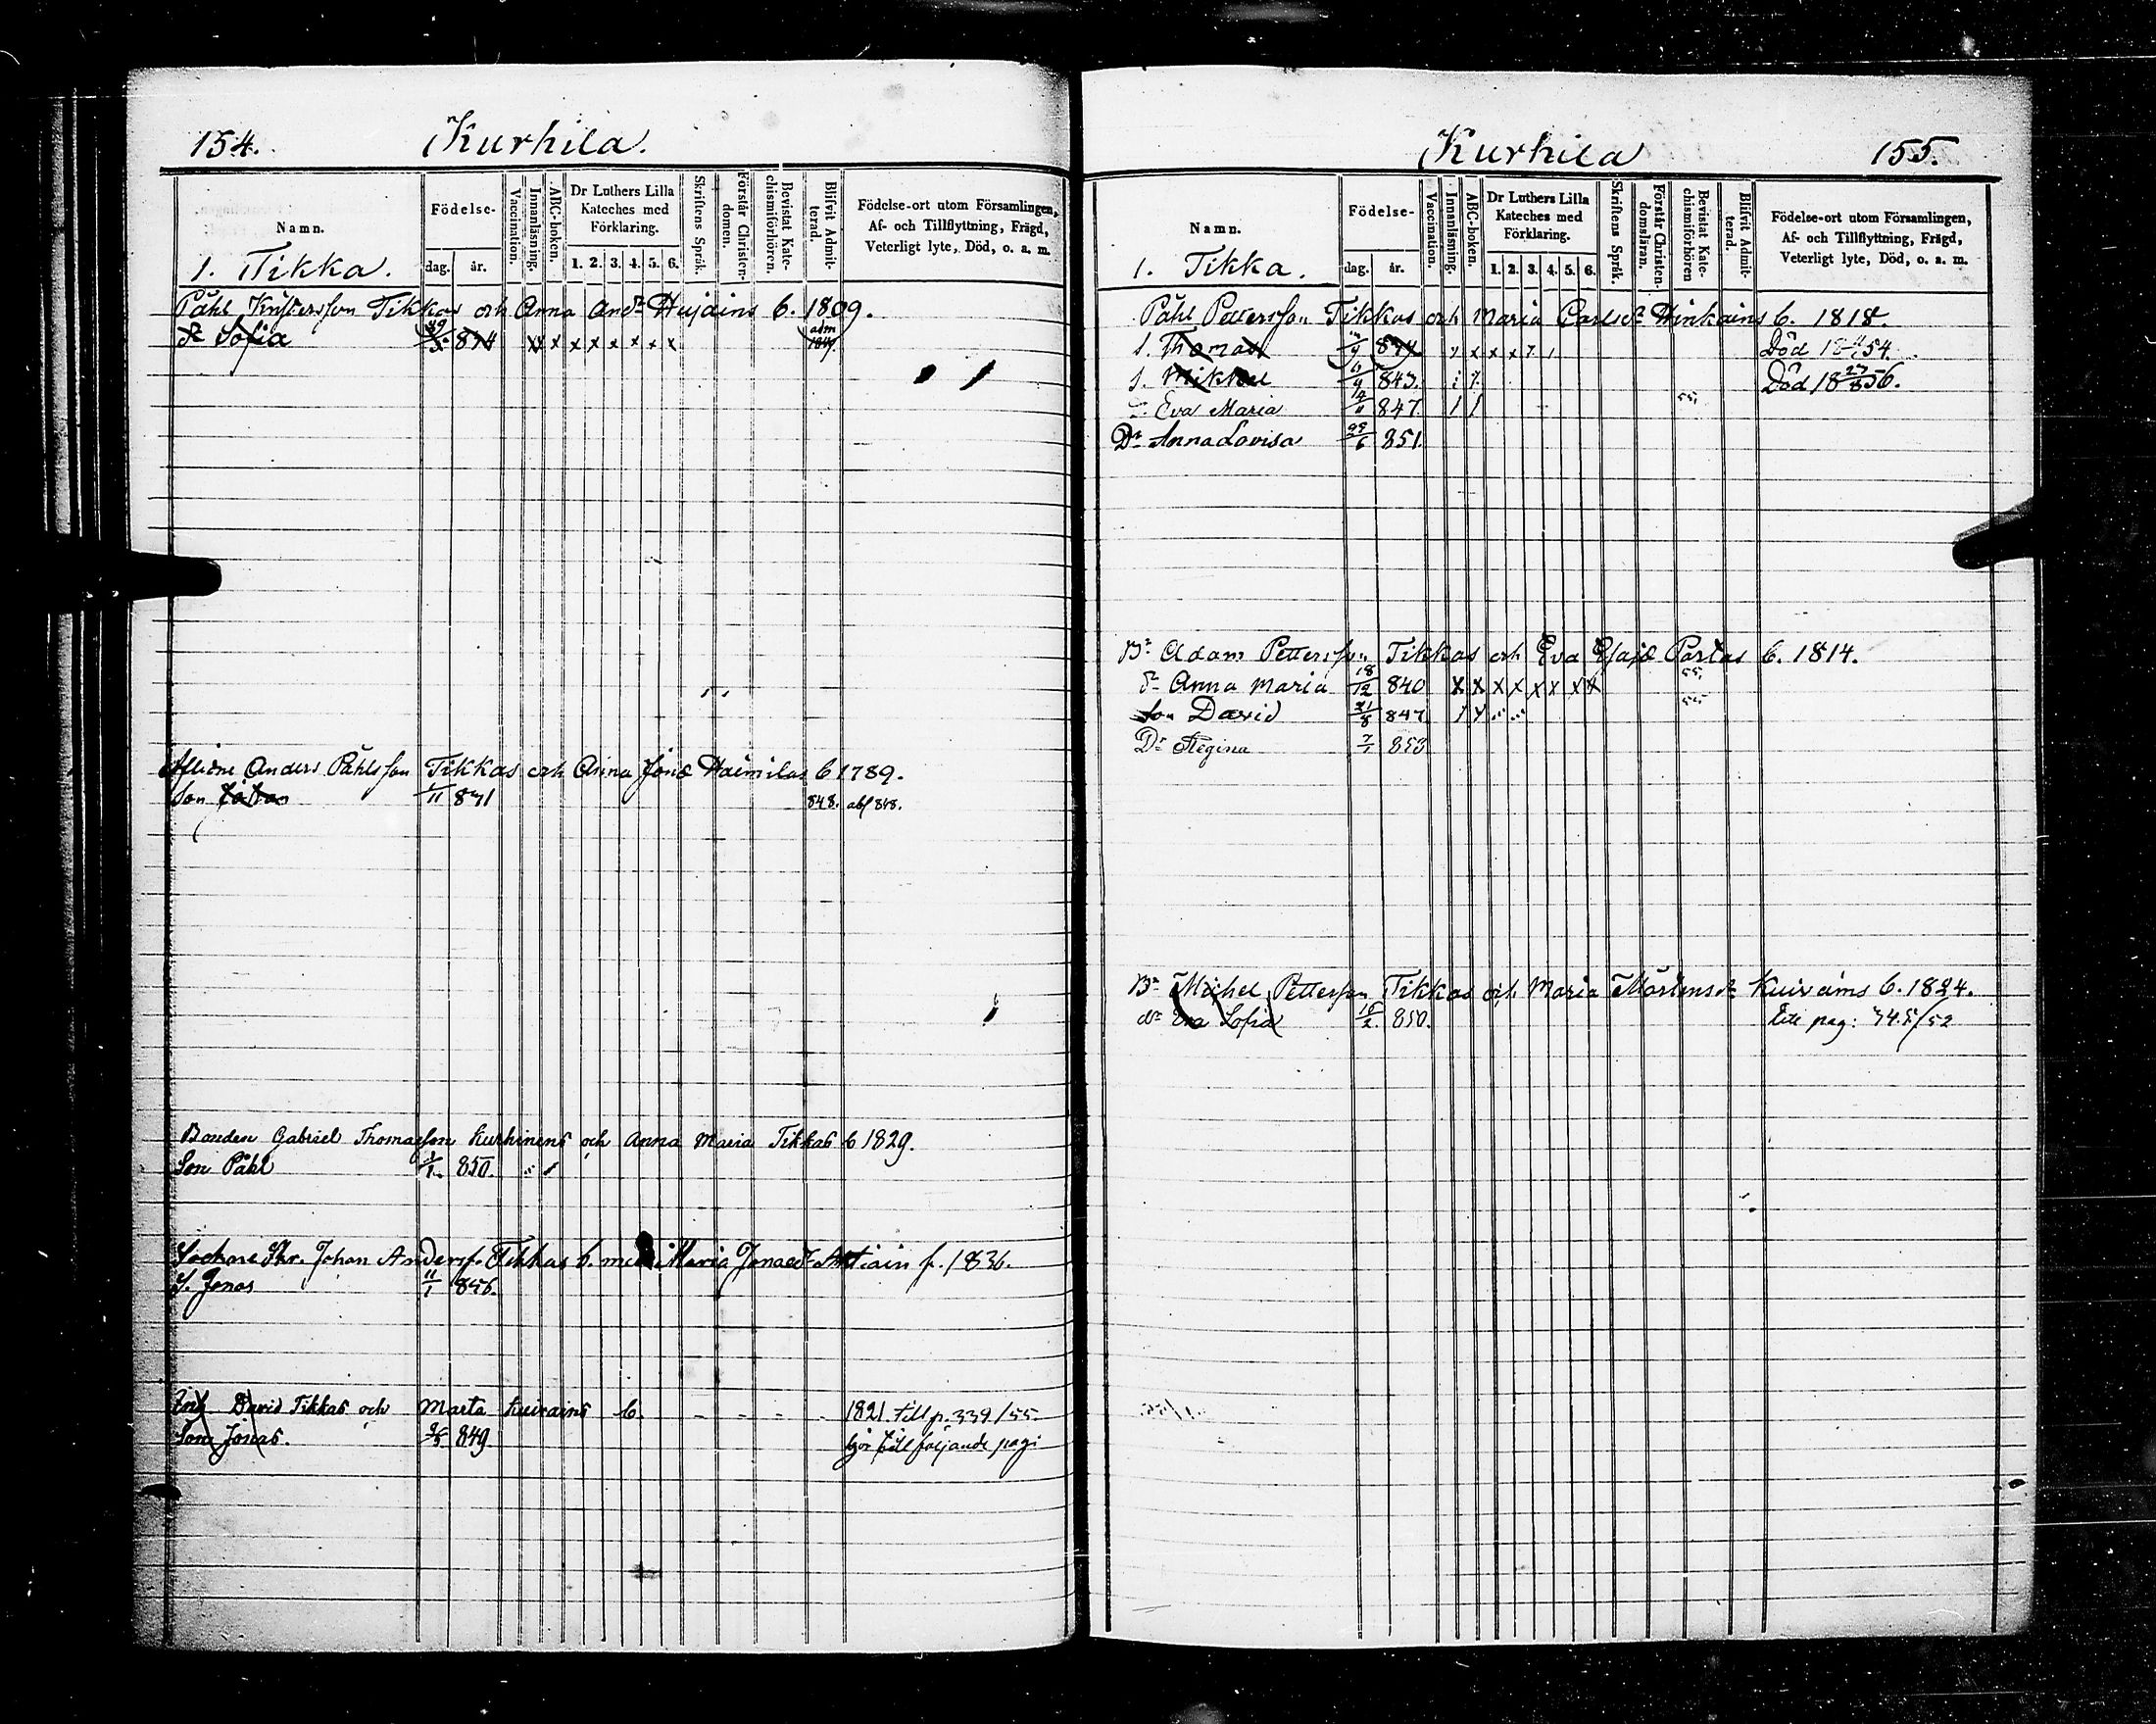 154. Kurhila.
Namn.
Födelse-
dag. år.
Vaccination.
Innanläsning.
ABC-boken.
Dr Luthers Lilla
Kateches med
Förklaring.
1. 2. 3. 4. 5. 6.
Skriftens Språk.
Förstår Christen-
domen.
Bevistat Kate-
chismiförhören.
Blifvit Admit-
terad.
Födelse-ort utom Församlingen,
Af- och Tillflyttning, Frägd,
Veterligt lyte, Död, o. a. m.
1. Tikka.
Påhl Tikkas och Anna And:dr Hujains b. 1809.
dr Sofia x x x x x x x x adm
Aflidne Anders Påhlsson Tikkas och Anna Jonæ Haimilas b 1789.
Son 11 848. abs 848.
Bonden Gabriel Thomasson Kurhinens och Anna Maria Tikkas b 1829.
Son Påhl 850.
Sockne Skr. Johan Anderss. Tikkas b. med Maria Jonaedr f. 1836.
S. Jonas 11/1 856.
David Tikkas och Marta Kuivains b. - - - - 1821. till p. 339/55.
Son Jonas. 849. till följande pag:
Kurhila 155.
Namn.
Födelse-
dag. år.
Vaccination.
Innanläsning.
ABC-boken.
Dr Luthers Lilla
Kateches med
Förklaring.
1. 2. 3. 4. 5. 6.
Skriftens Språk.
Förstår Christen-
domsläran.
Bevistat Kate-
chismiförhören
Blifvit Admit-
terad.
Födelse-ort utom Församlingen,
Af- och Tillflyttning, Frägd,
Veterligt lyte, Död, o. a. m.
1. Tikka.
Påhl Pettersson Tikkas och Maria Carlsdr Hinkains b. 1818.
S. Thomas Död 54.
S. Mikkel 843. Död 18 27/8 56.
Eva Maria 847. / / 55.
Dr Anna Lovisa 851.
Br Adam Pettersson Tikkas och Eva Esajæ Portas b. 1814.
dr Anna Maria 18/12 840 x x x x x x x x 55.
Son David 21/8 847 55
Dr Regina 7/1 853
Br Michel Pettersson Tikkas och Maria Mårtensdr Kuivains b. 1824.
dr Eva Sofia 850. till pag: /52